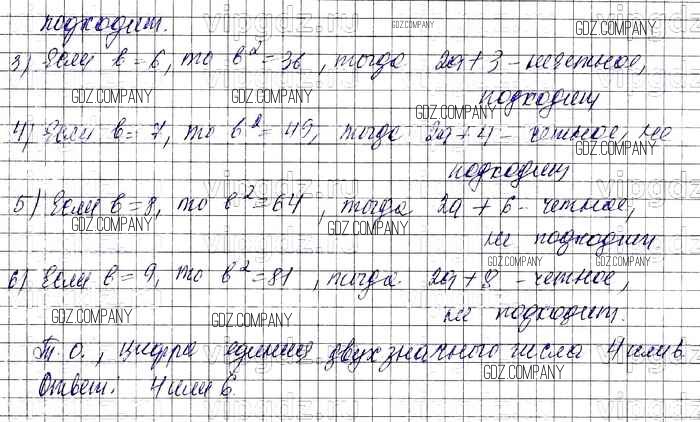 подходит.
3) Если в = 6, то в² = 36, тогда 2а + 3 - нечетное,
подходит
4) Если в = 7, то в² = 49, тогда 2а + 4 - четное, не
подходит
5) Если в = 8, то в² = 64, тогда 2а + 6 - четное,
не подходит.
6) Если в = 9, то в² = 81, тогда 2а + 8 - четное,
не подходит.
Т.о., цифра единиц двухзначного числа 4 или 6.
Ответ: 4 или 6
GDZ.COMPANY
vipgdz.ru